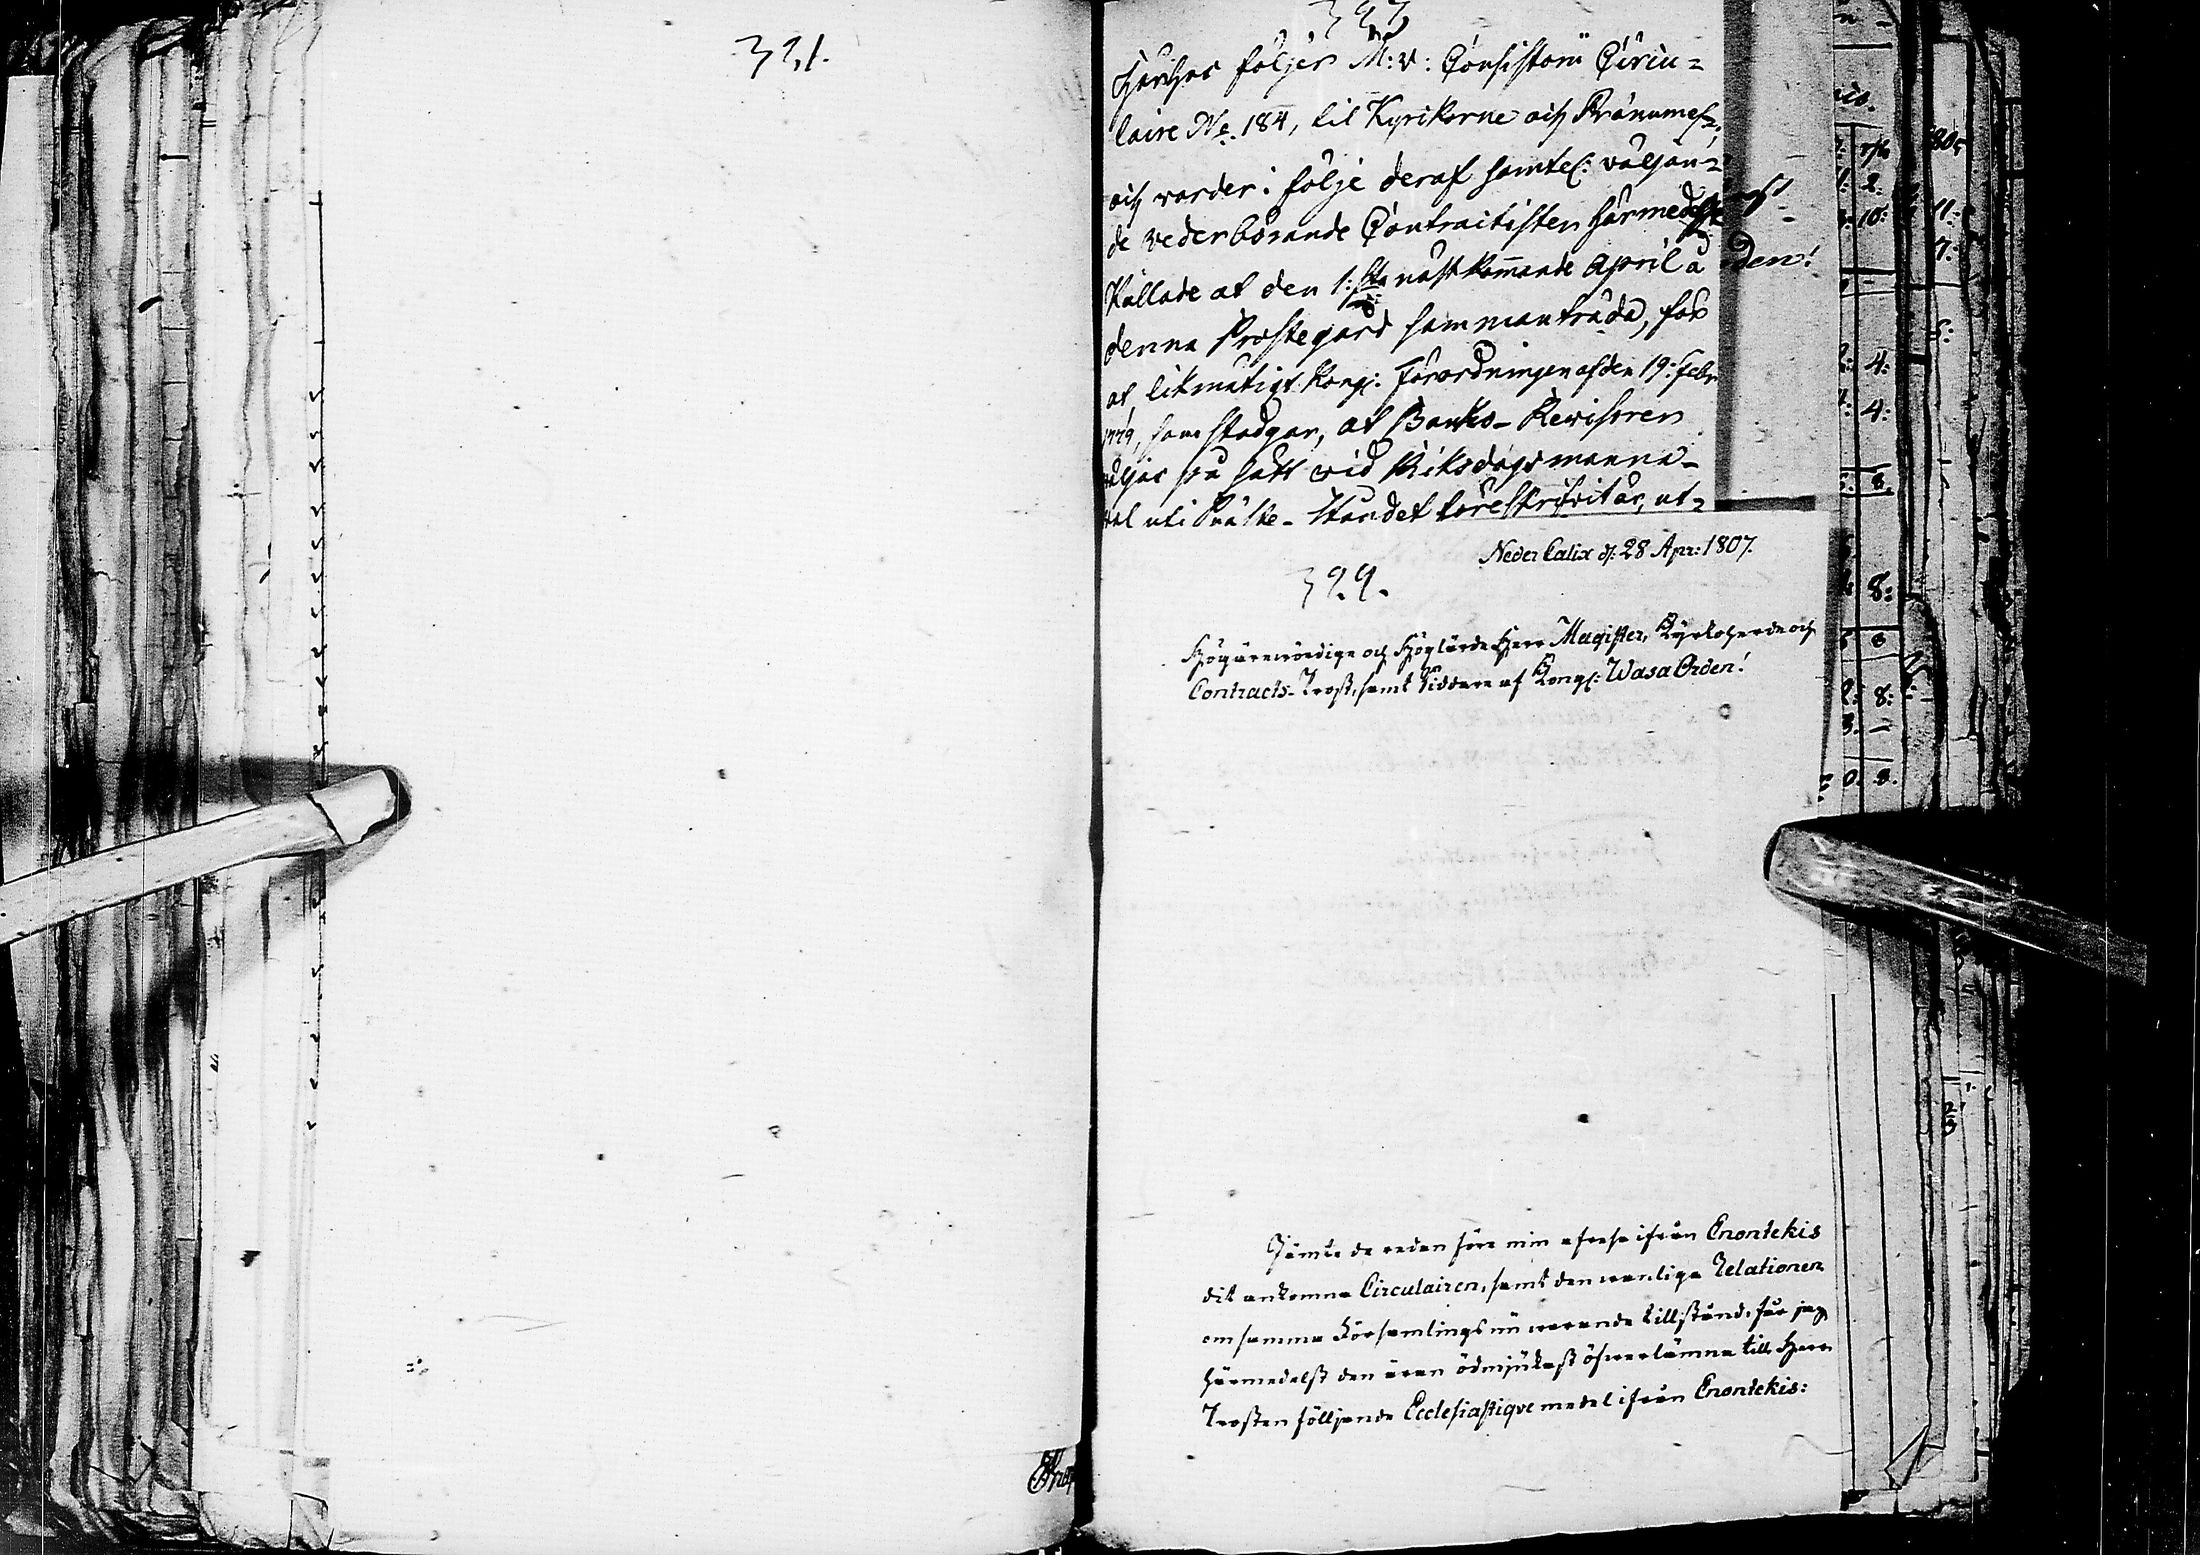 321.
323
Härhos följer M: v: Consistorii Circu=
laire No. 184, til Kyrkorne och Pränumer:
och warder i följe deraf samtel: väljan=
de wederbörande Contractister härmedelst
Kallade at den 1:sta nästkommande April å
denna Prostegård sammanträda, för
at likmätigt Kongl: Förordningen af den 19: Febr
1779, som stadgar, at Banko-Revisoren
wäljes på sätt wid Riksdagsmanna-
wal uti Präste-Ståndet föreskrifvit är, ut=
den!
Neder Calix d: 28 Apr: 1807.
329.
Högärewördige och Höglärde Herr Magister, Kyrkoherde och
Contracts-Prost, samt Riddare af Kongl: Wasa Orden!
Jämte de redan före min afresa ifrån Enontekis
dit ankomne Circulairen, samt den wanliga Relationen
om samma Församlings nu warande tillstånd, får jag
härmedelst den äran ödmjukast öfwerlämna till Herr
Prosten följjande Ecclesiastique medel ifrån Enontekis: